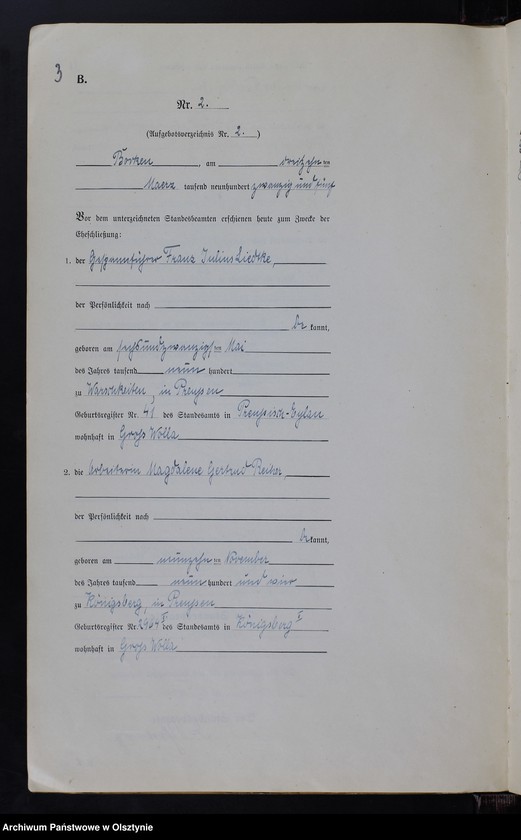 3 B.
Nr. 2.
(Aufgebotsverzeichnis Nr. 2.)
Borken, am dreizehnten
Maerz tausend neunhundert zwanzig und fünf
Vor dem unterzeichneten Standesbeamten erschienen heute zum Zwecke der
Eheschließung:
1. der Gespannführer Franz Julius Liedtke,
der Persönlichkeit nach
be kannt,
geboren am sechsundzwanzigsten Mai
des Jahres tausend neun hundert
zu Warschkeiten, in Preußen
Geburtsregister Nr. 41 des Standesamts in Preußisch-Eylau
wohnhaft in Groß Wolla
2. die Arbeiterin Magdalene Gertrud
der Persönlichkeit nach
be kannt,
geboren am neunzehnten November
des Jahres tausend neun hundert und vier
zu Königsberg, in Preußen
Geburtsregister Nr. 2964 I des Standesamts in Königsberg I
wohnhaft in Groß Wolla
Archiwum Państwowe w Olsztynie